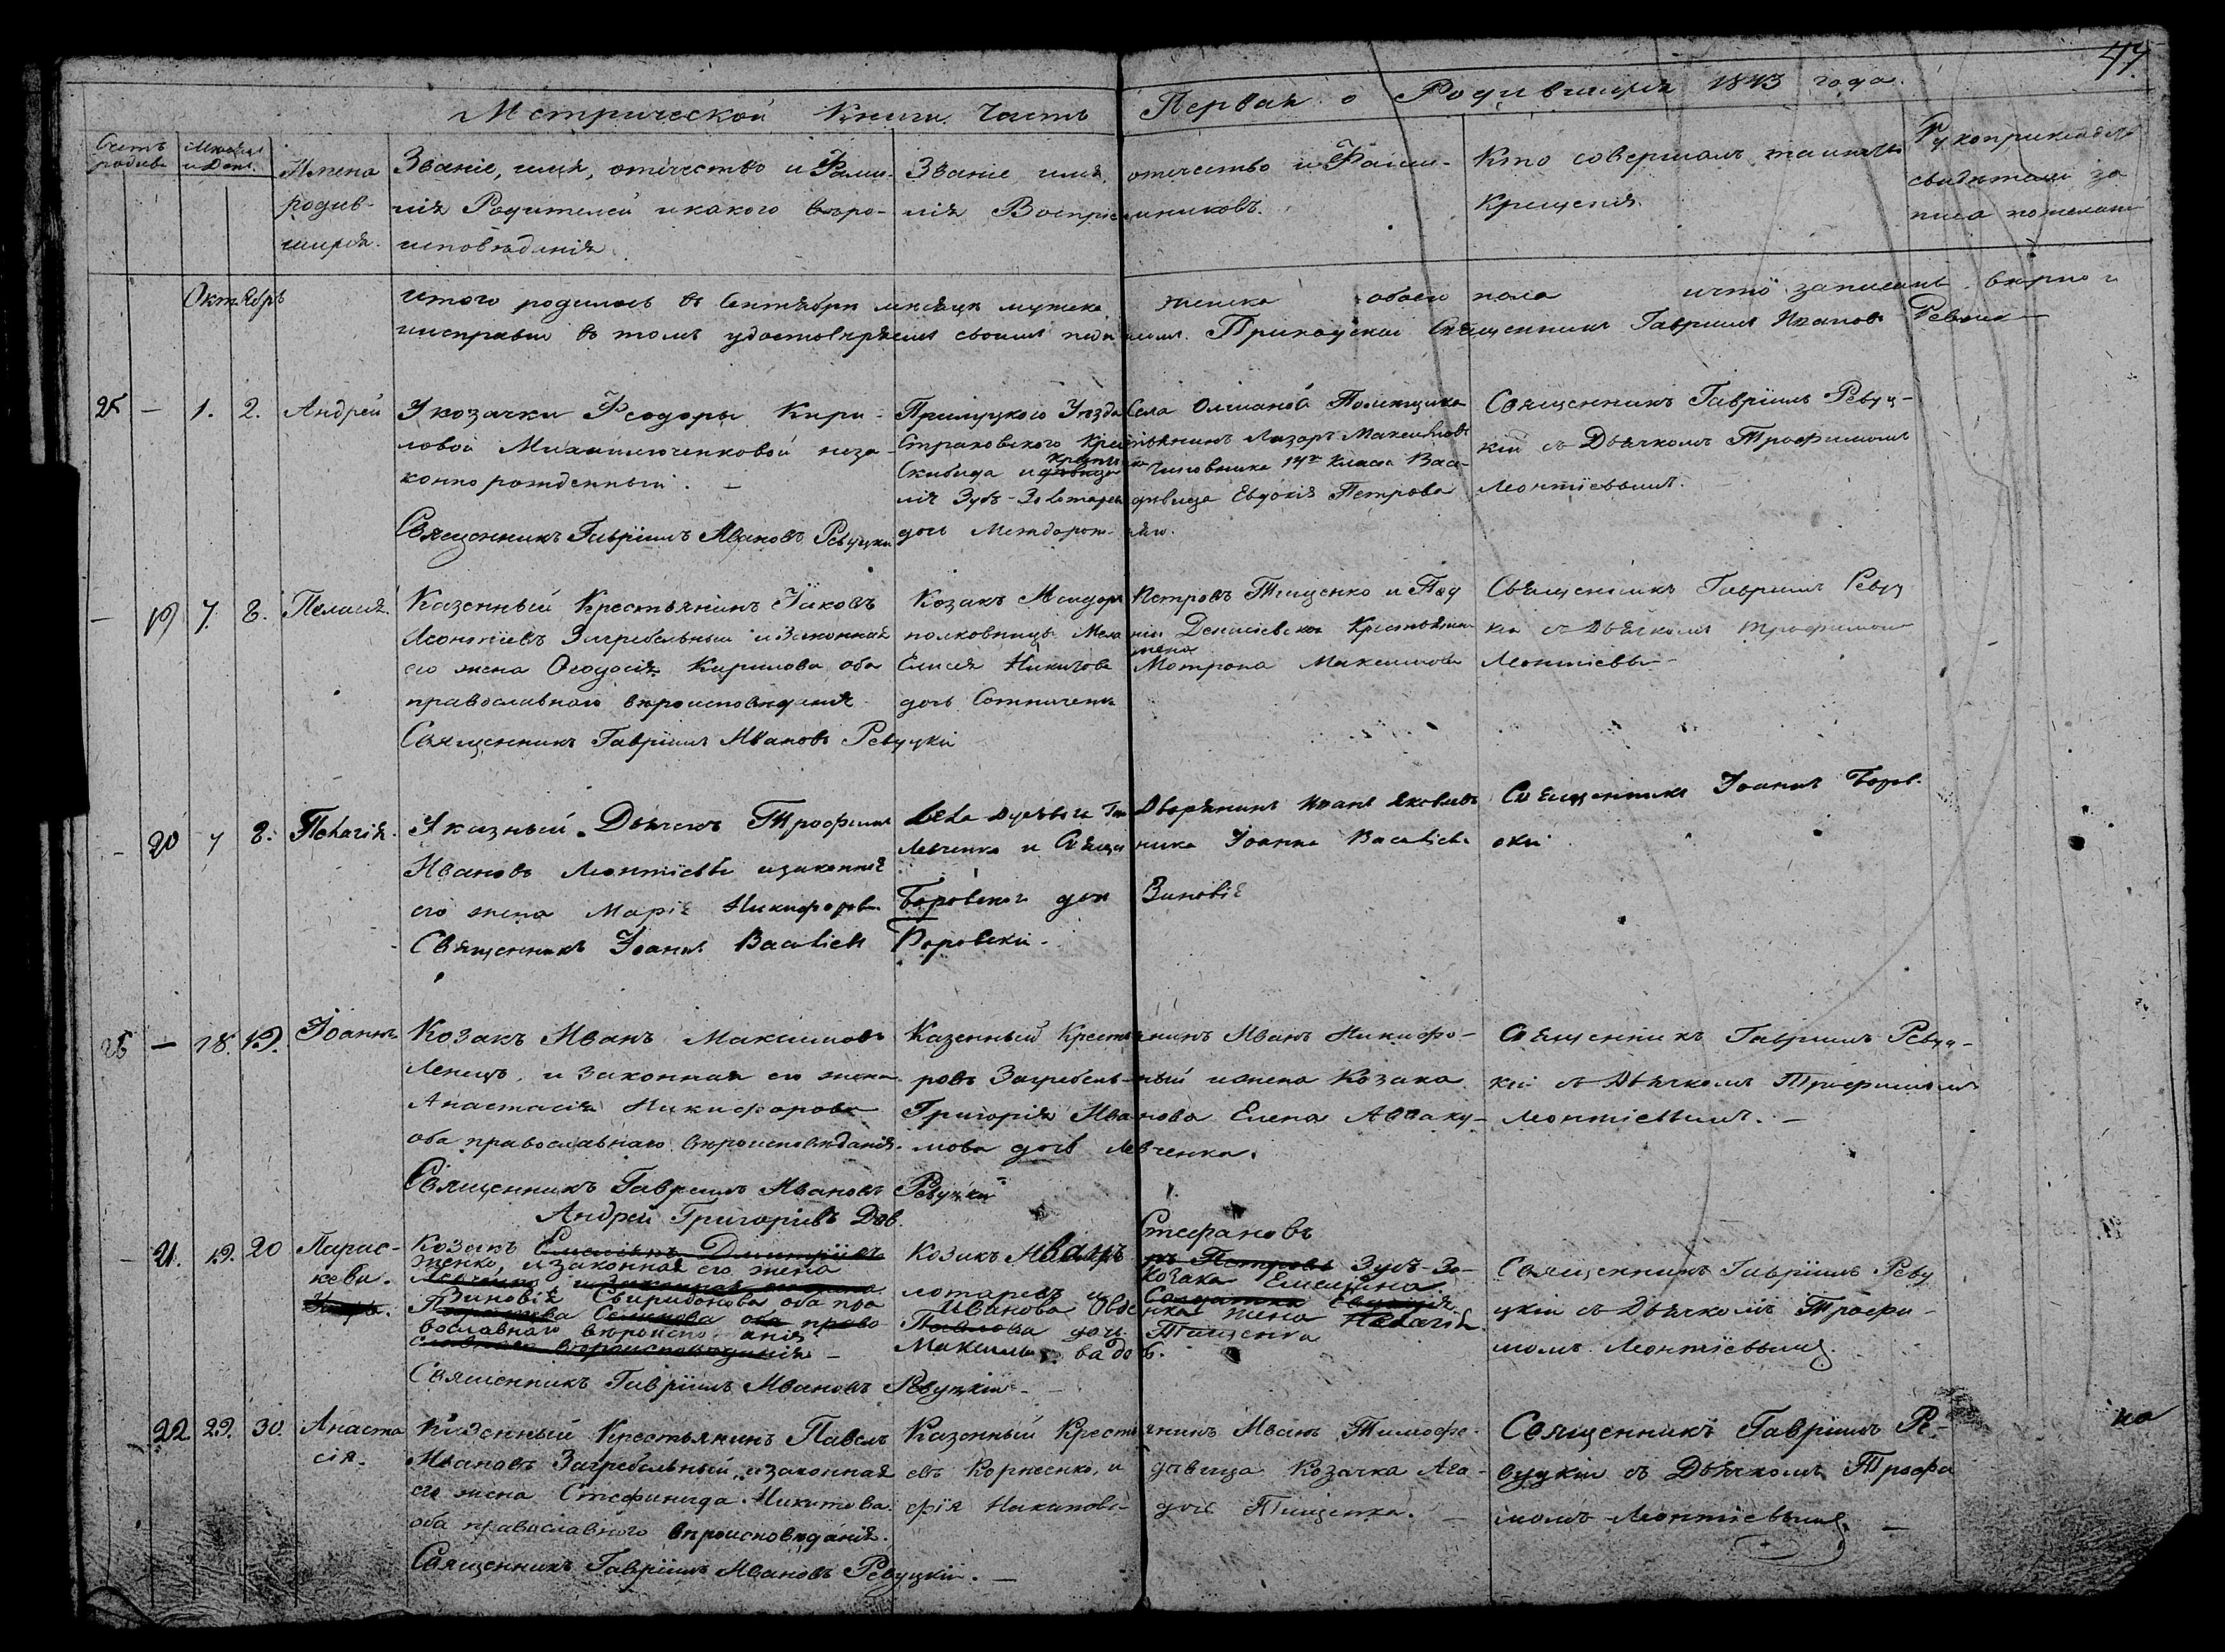 47
Метрической Книги Часть Первая о Родившихся 1843 года.
Счетъ родив.
Месяцъ и День.
Имена
родив-
шихся.
Званіе, имя, отчество и Фами-
лія Родителей и какого веро-
исповѣданія
Званіе имя, отчество и Фами-
лія Воспріемниковъ.
Кто совершалъ таинство
Крещенія
Рукоприкладство
свидѣтелей за
писа по желанію
Октябрь
Итого родилось въ Сентябрѣ мѣсяцѣ мужеска женска обоего пола и что записаны вѣрно и
исправно въ томъ удостовѣряемъ своимъ подписомъ. Приходскій Священникъ Гавріилъ Ивановъ
25 — 1. 2. Андрей
У козачки Феодоры Кири-
ловой Михайлюченковой неза-
конно рожденный. —
Священникъ Гавріилъ Ивановъ Ревуцкій
Прилуцкого Уѣзда Села Олшаной Помѣщика
Страховского Крестьянинъ Лазарь Максимовъ
Скибида и Чиновника 14го Класса Васи-
лія Зубъ-Золотарева дѣвица Евдокія Петрова
дочь
Священникъ Гавріилъ Ревуц-
кій съ Дьячкомъ Трофимомъ
Леонтіевымъ.
— 19 7. 8. Пелагія
Казенный Крестьянинъ Іаковъ
Леонтіевъ Загребельный и Законная
его жена Феодосія Кирилова оба
православнаго вѣроисповѣданія
Священникъ Гавріилъ Ивановъ Ревуцкій
Козакъ Исидоръ Петровъ Тищенко и Под
полковницы Крестьянина
жена
Мотрона Максимова
дочь
Священникъ Гавріилъ Ревуц
кій съ Дьячкомъ Трофимомъ
Леонтіевы
— 20 7 8. Пелагія.
Указный Дьячокъ Трофимъ
Ивановъ Леонтіевъ и законная
его жена Марія Никифорова
Священникъ Іоаннъ Василіевъ Боровскій.
Села Дворянинъ Иванъ Яковлевъ
Левченко и Священника Іоанна Василіева
Боровского дочь Зиновія
Священникъ Іоаннъ Боров-
скій
26 — 18. 19. Іоаннъ
Козакъ Иванъ Максимовъ
и законная его жена
Анастасія Никифорова
оба православнаго вѣроисповѣданія.
Священникъ Гавріилъ Ивановъ Ревуцкій
Казенный Крестьянинъ Иванъ Никифо-
ровъ Загребельный и жена Козака
Григорія Иванова Елена Авваку-
мова дочь Левченка.
Священникъ Гавріилъ Ревуц-
кій съ Дьячкомъ Трофимомъ
Леонтіевымъ. —
Андрей Григоріевъ Дов.
— 21. 19. 20 Парас-
кева.
Козакъ Емеліянъ Дмитріевъ
женко, и законная его жена
Зиновія Свиридонова оба пра
вославнаго вѣроиспо анія
Священникъ Гавріилъ Ивановъ Ревуцкій
Стефановъ
Козакъ Иванъ Петровъ Зубъ-Зо-
лотаревъ и Козака
Иванова
жена Наталія
Павлова дочь Тищенка
Максимова дочь.
Священникъ Гавріилъ Реву
цкій съ Дьячкомъ Трофи-
момъ Леонтіевымъ.
22 29. 30. Анаста
сія.
Казенный Крестьянинъ Павелъ
Ивановъ Загребельный, и законная
его жена Стефанида Никитова
оба православнаго вѣроисповѣданія.
Священникъ Гавріилъ Ивановъ Ревуцкій. —
Казенный Крестьянинъ Иванъ Тимофе-
евъ Корнеенко, и дѣвица Козачка Ага-
фія дочь Тищенка. —
Священникъ Гавріилъ Ре-
вуцкій съ Дьячкомъ Трофи
момъ Леонтіевымъ. —